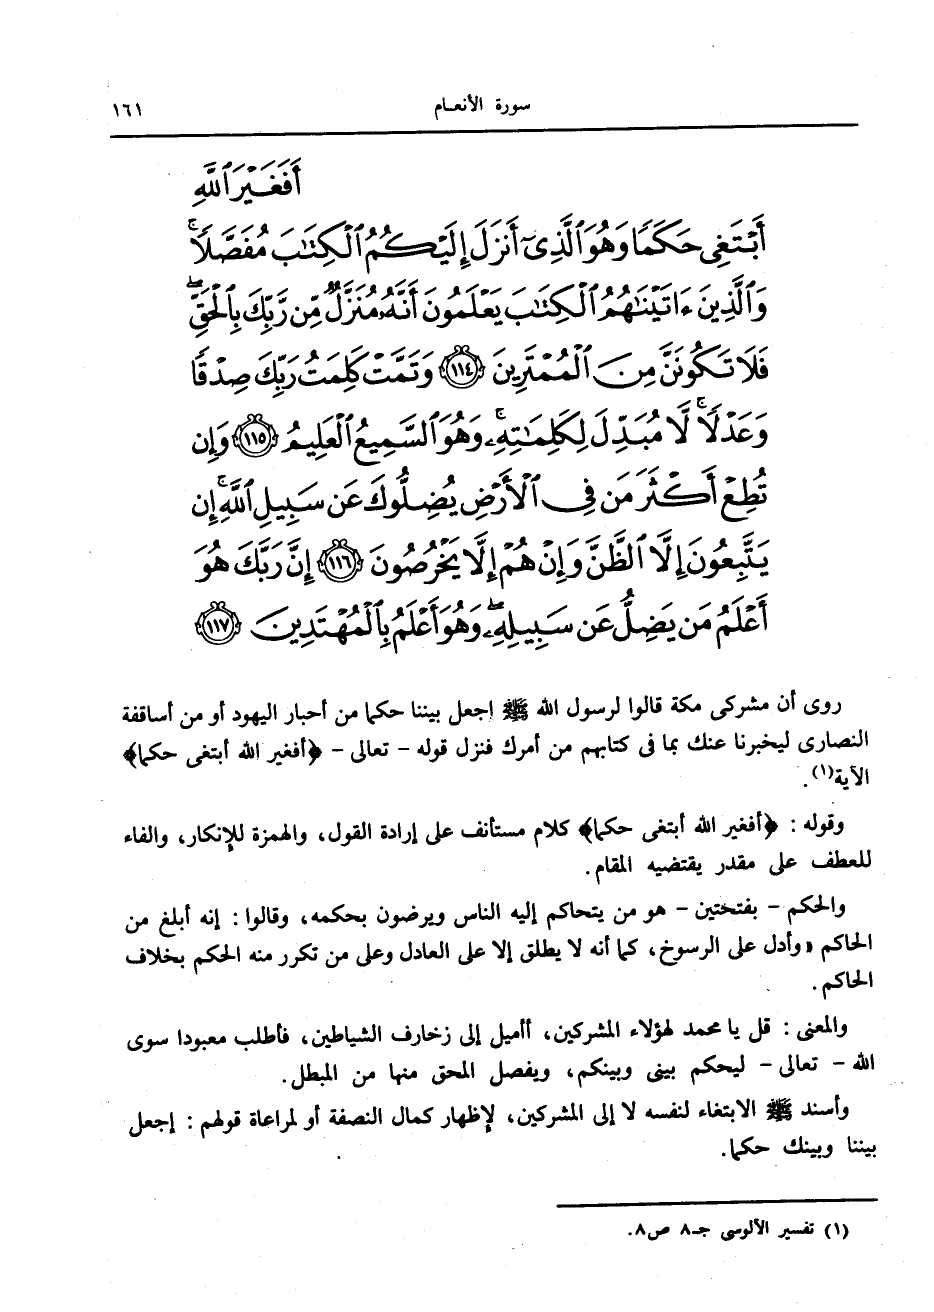 سورة الأنعـام
١٦١
أَفَغَيْرَ ٱللَّهِ
أَبْتَغِى حَكَمًا وَهُوَ ٱلَّذِىٓ أَنزَلَ إِلَيْكُمُ ٱلْكِتَٰبَ مُفَصَّلًاۚ
وَٱلَّذِينَ ءَاتَيْنَٰهُمُ ٱلْكِتَٰبَ يَعْلَمُونَ أَنَّهُۥ مُنَزَّلٌ مِّن رَّبِّكَ بِٱلْحَقِّۖ
فَلَا تَكُونَنَّ مِنَ ٱلْمُمْتَرِينَ ١١٤ وَتَمَّتْ كَلِمَتُ رَبِّكَ صِدْقًا
وَعَدْلًاۚ لَّا مُبَدِّلَ لِكَلِمَٰتِهِۦۚ وَهُوَ ٱلسَّمِيعُ ٱلْعَلِيمُ ١١٥ وَإِن
تُطِعْ أَكْثَرَ مَن فِى ٱلْأَرْضِ يُضِلُّوكَ عَن سَبِيلِ ٱللَّهِۚ إِن
يَتَّبِعُونَ إِلَّا ٱلظَّنَّ وَإِنْ هُمْ إِلَّا يَخْرُصُونَ ١١٦ إِنَّ رَبَّكَ هُوَ
أَعْلَمُ مَن يَضِلُّ عَن سَبِيلِهِۦۖ وَهُوَ أَعْلَمُ بِٱلْمُهْتَدِينَ ١١٧
روى أن مشركى مكة قالوا لرسول الله ﷺ اجعل بيننا حكما من أحبار اليهود أو من أساقفة
النصارى ليخبرنا عنك بما فى كتابهم من أمرك فنزل قوله - تعالى - ﴿أفغير الله أبتغى حكما﴾
الآية(١).
وقوله : ﴿أفغير الله أبتغى حكما﴾ كلام مستأنف على إرادة القول، والهمزة للإنكار، والفاء
للعطف على مقدر يقتضيه المقام.
والحكم - بفتحتين - هو من يتحاكم إليه الناس ويرضون بحكمه، وقالوا : إنه أبلغ من
الحاكم «وأدل على الرسوخ، كما أنه لا يطلق إلا على العادل وعلى من تكرر منه الحكم بخلاف
الحاكم.
والمعنى : قل يا محمد لهؤلاء المشركين، أأميل إلى زخارف الشياطين، فأطلب معبودا سوى
الله - تعالى - ليحكم بينى وبينكم، ويفصل المحق منها من المبطل.
وأسند ﷺ الابتغاء لنفسه لا إلى المشركين، لإظهار كمال النصفة أو لمراعاة قولهم : إجعل
بيننا وبينك حكما.
(١) تفسير الألوسى جـ٨ ص٨.